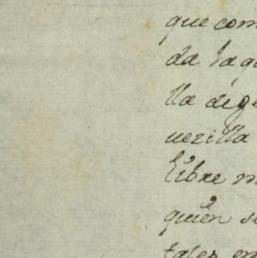 que com
da la q
lla dig
uezilla
libre m
quien se
tales en